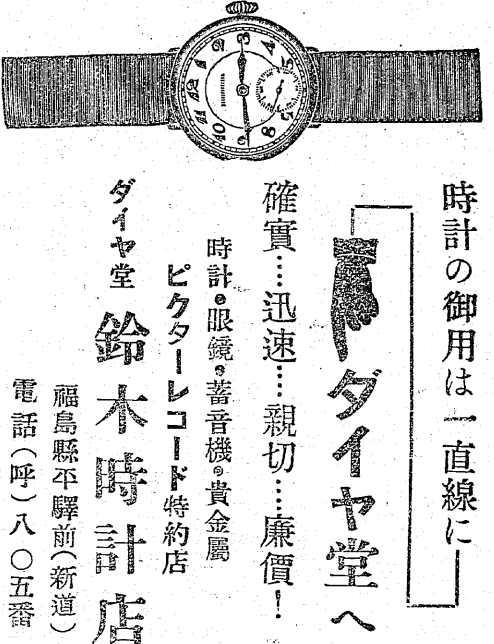 時計の御用は一直線に
ダイヤ堂へ
確實…迅速…親切…廉價!
時計・眼鏡・蓄音機・貴金屬
ピクターレコード特約店
ダイヤ堂 鈴木時計店
福島縣平驛前(新道)
電話(呼)八〇五番